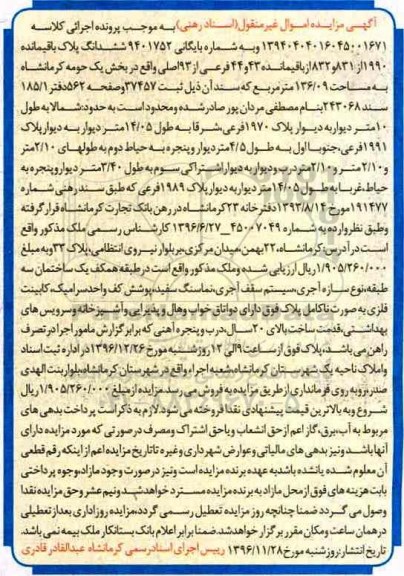 آگهی مزایده اموال غیرمنقول(اسناد رهنی) به موجب پرونده اجرائی کلاسه
۱۳۹۴۰۴۰۴۰۱۶۰۴۵۰۰۱۶۷۱ وبه شماره بایگانی ۹۴۰۱۷۵۲ ششدانگ پلاک باقیمانده
۱۹۹۰از ۸۳۱و۸۳۲ازباقیمانده۴۳و۴۴ فرعی از ۹۳اصلی واقع در بخش یک حومه کرمانشاه
به مساحت ۱۳۶/۰۹ مترمربع که سند آن ذیل ثبت ۳۷۴۵۷وصفحه ۵۶۲دفتر ۱۸۵/۱
سند ۲۴۳۰۶۸ بنام مصطفی مردان پور صادرشده ومحدوداست به حدود:شمالا به طول
۱۰متر دیوار به دیوار پلاک ۱۹۷۰فرعی،شرقا به طول ۱۴/۰۵متر دیوار به دیوارپلاک
۱۹۹۱فرعی،جنوبا اول به طول ۴/۵متر دیوارو پنجره به حیاط دوم به طولهای ۲/۱۰متر
و۲/۱۰متر و۲/۱۰متر درب ودیوار به دیواراشتراکی سوم به طول ۳/۴۰متر دیواروپنجره به
حیاط،غربا به طول ۱۴/۰۵متر دیوار به دیوارپلاک ۱۹۸۹فرعی که طبق سندرهنی شماره
۱۹۱۴۷۷ مورخ ۱۳۹۲/۸/۱۴دفترخانه ۲۳کرمانشاه در رهن بانک تجارت کرمانشاه قرار گرفته
وطبق نظروارده به شماره ۴۵۰۰۷۰۴۹_۱۳۹۶/۶/۲۷ کارشناس رسمی ملک مذکور واقع
است در آدرس:کرمانشاه،۲۲بهمن،میدان مرکزی،بربلوار نیروی انتظامی،پلاک ۳۲وبه مبلغ
۱/۹۰۵/۲۶۰/۰۰۰ریال ارزیابی شده وملک مذکور واقع است در طبقه همکف یک ساختمان سه
طبقه،نوع سازه آجری،سیستم سقف آجری،نماسنگ سفید،پوشش کف واحدسرامیک،کابینت
فلزی به صورت ناکامل پلاک فوق دارای دواتاق خواب وهال وپذیرایی وآشپزخانه وسرویس های
بهداشتی،قدمت ساخت بالای ۲۰سال،درب وپنجره آهنی که برابر گزارش مامور اجرا در تصرف
راهن می باشد،پلاک فوق از ساعت ۹الی ۱۲ روزشنبه مورخ ۱۳۹۶/۱۲/۲۶در اداره ثبت اسناد
واملاک ناحیه یک شهرستان کرمانشاه شعبه اجراء واقع در شهرستان کرمانشاه،بلواربنت الهدی
صدر،روبه روی فرمانداری از طریق مزایده به فروش می رسد.مزایده ازمبلغ ۱/۹۰۵/۲۶۰/۰۰۰ ریال
شروع وبه بالاترین قیمت پیشنهادی نقدا فروخته می شود.لازم به ذکراست پرداخت بدهی های
مربوط به آب،برق،گاز اعم از حق انشعاب ویاحق اشتراک ومصرف در صورتی که مورد مزایده دارای
آنها باشد ونیز بدهی های مالیاتی وعوارض شهرداری وغیره تا تاریخ مزایده اعم از اینکه رقم قطعی
آن معلوم شده یانشده باشد به عهده برنده مزایده است ونیز در صورت وجود مازاد،وجوه پرداختی
بابت هزینه های فوق از محل مازاد به برنده مزایده مسترد خواهدشد ونیم عشر وحق مزایده نقدا
وصول می گردد ضمنا چنانچه روز مزایده تعطیل رسمی گردد،مزایده روز اداری بعد از تعطیلی
در همان ساعت ومکان مقرر برگزار خواهد شد.ضمنا برابر اعلام بانک بستانکار ملک بیمه نمی باشد.
تاریخ انتشار:روز شنبه مورخ ۱۳۹۶/۱۱/۲۸ رییس اجرای اسنادرسمی کرمانشاه عبدالقادر قادری